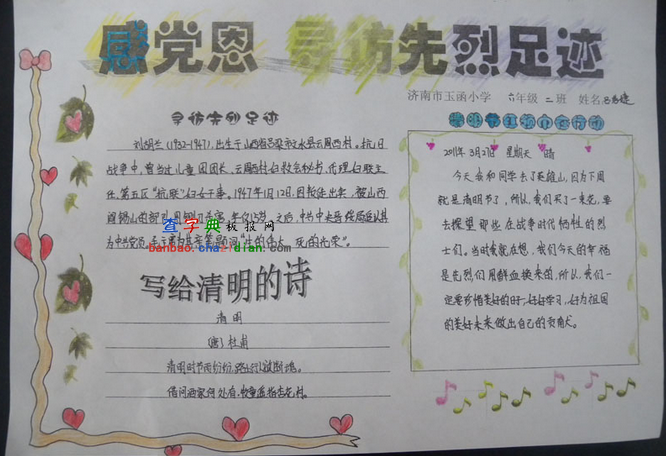 感党恩 寻访先烈足迹
济南市玉函小学 六年级 二班 姓名
寻访先烈足迹
刘胡兰(1932-1947),出生于山西省吕梁市文水县云周西村。抗日
战争中,曾当过儿童团团长、云周西村妇救会秘书、代理妇联主
任、第五区“抗联”妇女干事。1947年1月12日,因叛徒出卖,被山西
为中共党员,毛主席为其亲笔题词“生的伟大,死的光荣”。
查字典板报网
banbao.chazidian.com
写给清明的诗
清明
(唐) 杜甫
清明时节雨纷纷,路上行人欲断魂。
借问酒家何处有,牧童遥指杏花村。
2011年3月27日 星期天 晴
今天,我和同学去了英雄山,因为下周
就是清明节了,所以,我们买了一束花,要
去探望那些在战争时代牺牲的烈
士们。当时我就在想,我们今天的幸福
是先烈们用鲜血换来的,所以,我们一
定要珍惜美好的时,好好学习,好为祖国
的美好未来做出自己的贡献。